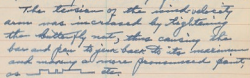 The tension of the wind velocity
arm was increased by tightening
the butterfly nut, thus causing the
bar and pen to jump back to its maximum
and making a more pronounced point,
as